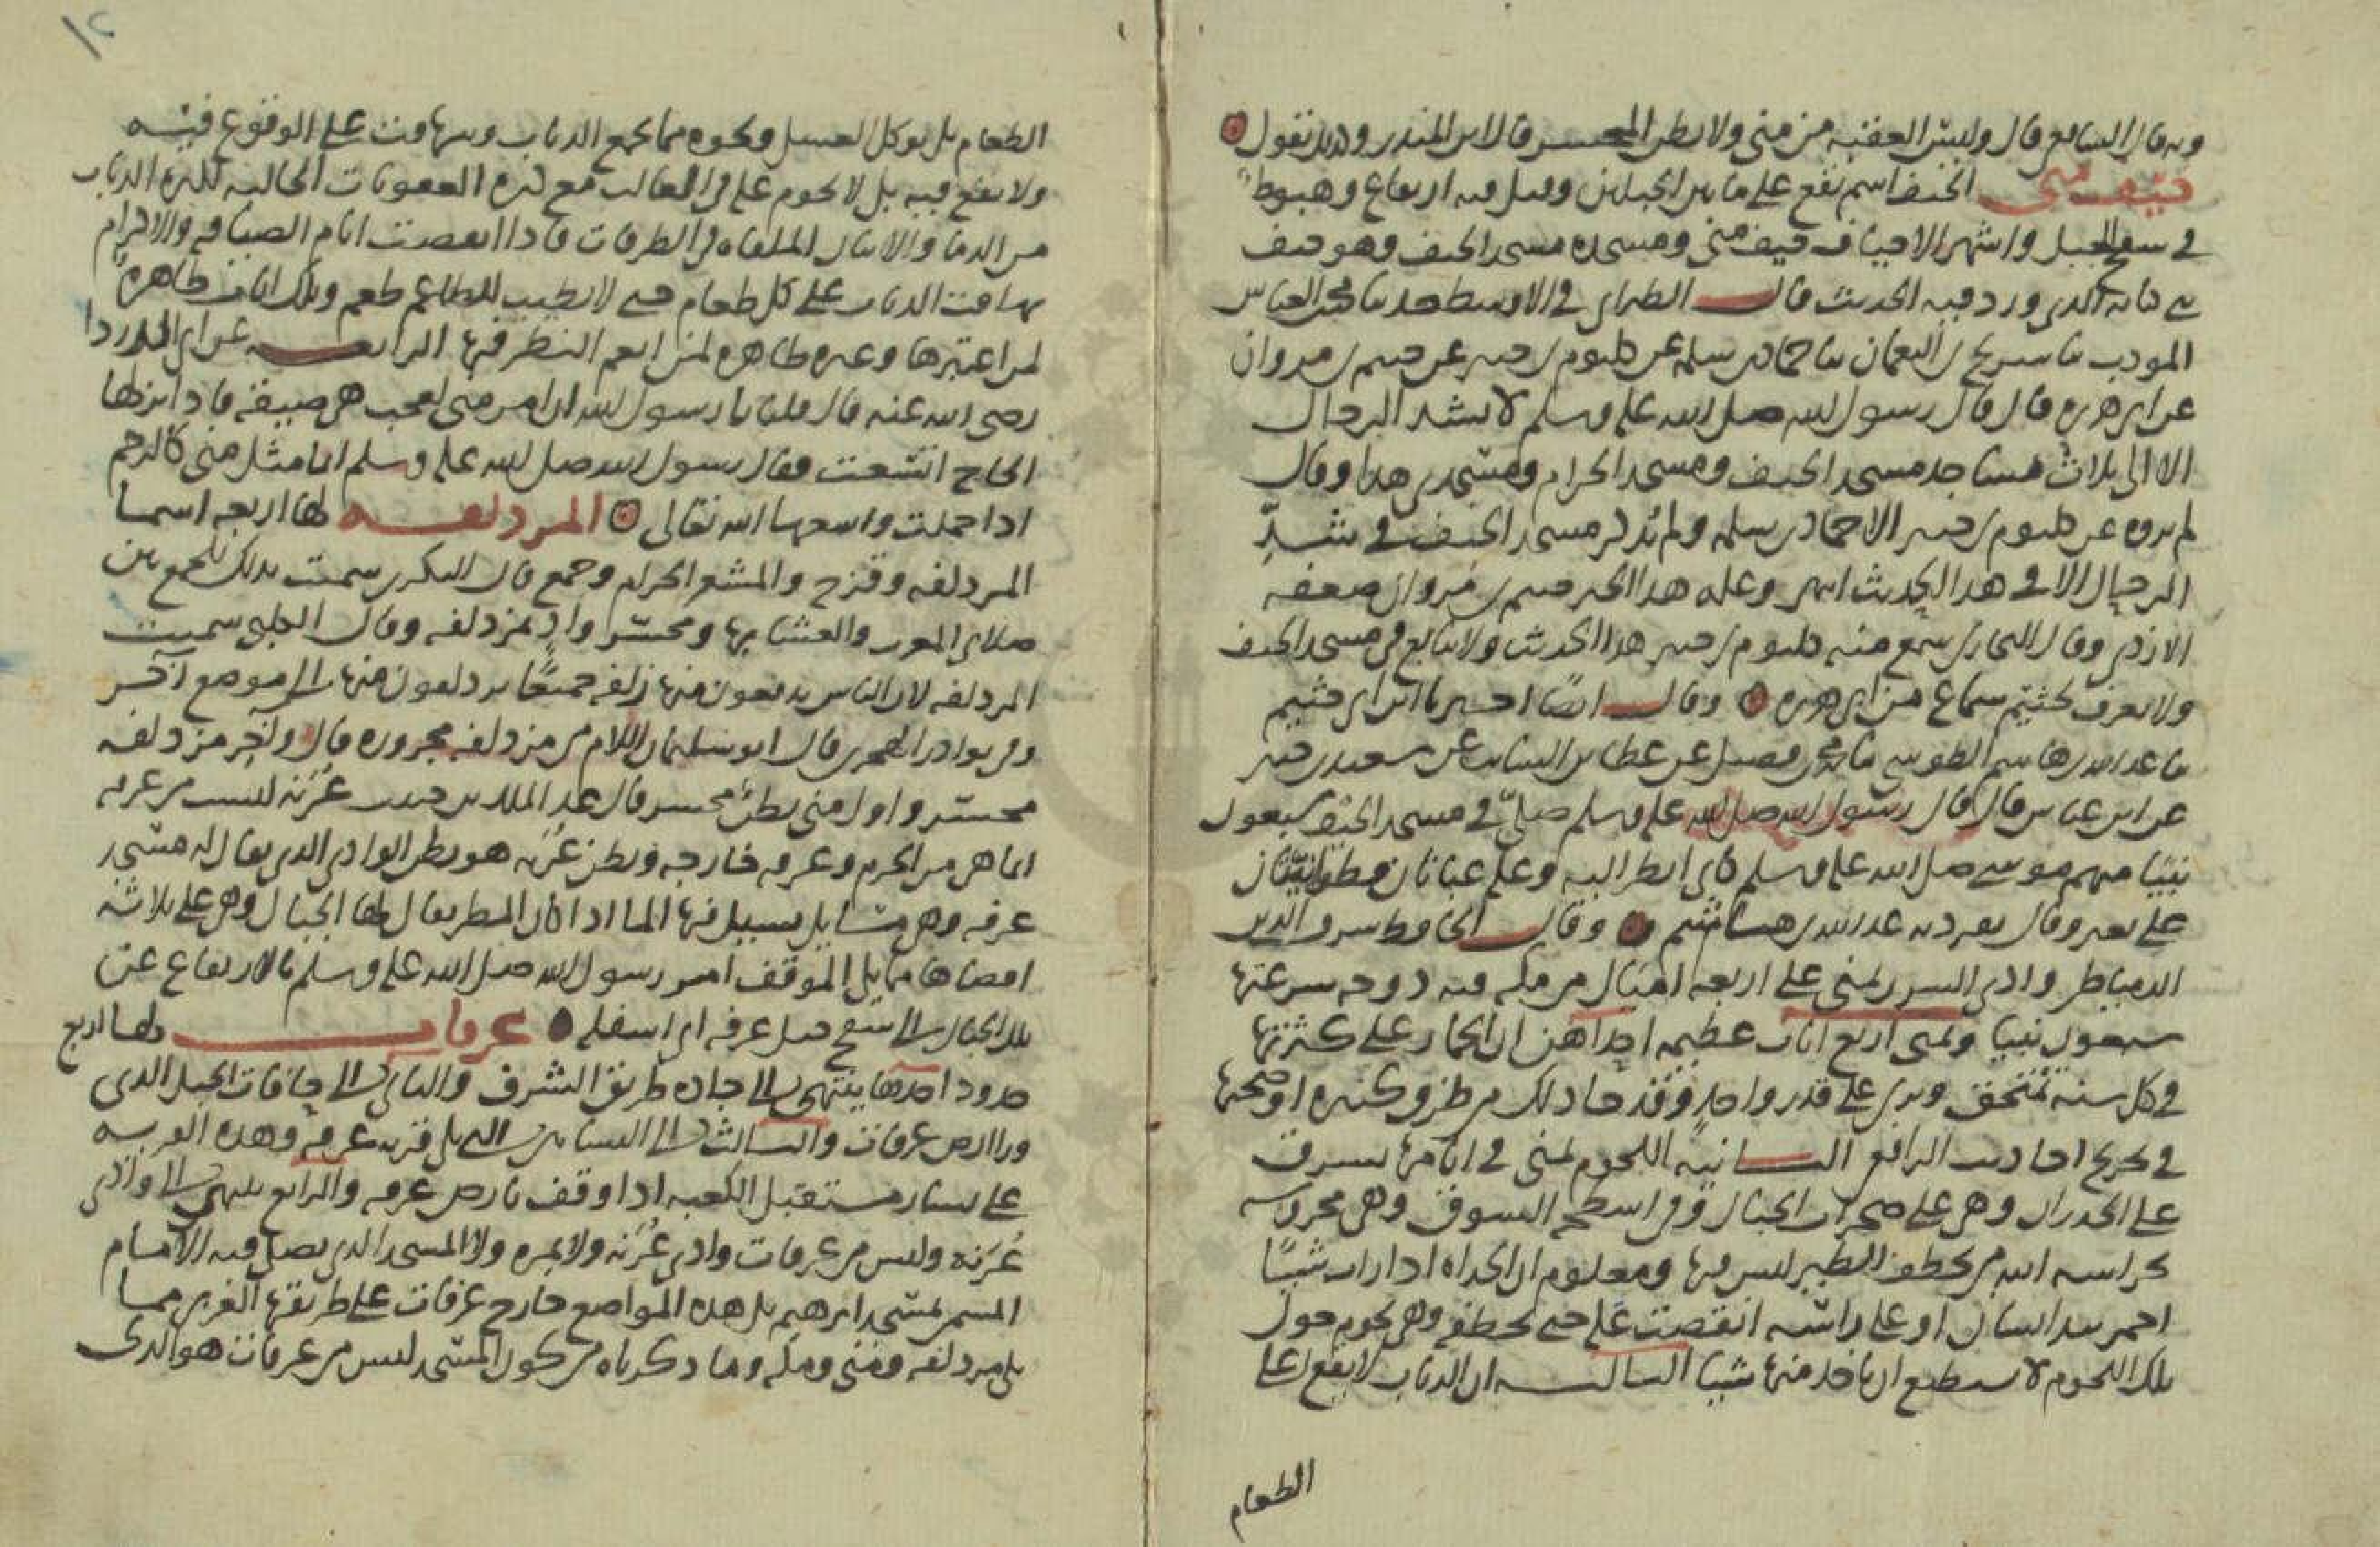 وبه قال الشافعي قال وليس العقبة من منى ولا بطن المحسر قال ابن المنذر وبه نقول
خيف منى الخيف اسم يقع على ما بين الجبلين وقيل فيه ارتفاع وهبوط
في سفح الجبل واشهر الاخياف خيف منى ومسجده مسجد الخيف وهو خيف
بني كنانة الذي ورد فيه الحديث قال الطبراني في الاوسط حدثنا محمد بن العباس
المودب ثنا سريج بن النعمان ثنا حماد بن سلمة عن كلثوم بن جبر عن خثيم بن مروان
عن ابي هريرة قال قال رسول الله صلى الله عليه وسلم لا تشد الرحال
الا الى ثلاث مساجد مسجد الخيف ومسجد الحرام ومسجدي هذا وقال
لم يروه عن كلثوم بن جبر الا حماد بن سلمة ولم يذكر مسجد الخيف في شد
الرحال الا في هذا الحديث انتهى وعلة هذا الخبر خثيم بن مروان ضعفه
الازدي وقال البخاري سمع منه كلثوم بن جبر هذا الحديث ولا يتابع في مسجد الخيف
ولا يعرف لخثيم سماع من ابي هريرة وقال ايضا اخبرنا ابن ابي خثيم
ثنا عبد الله بن هاشم الطوسي ثنا محمد بن فضيل عن عطا بن السايب عن سعيد بن جبير
عن ابن عباس قال قال رسول الله صلى الله عليه وسلم صلى في مسجد الخيف سبعون
نبيا منهم موسى صلى الله عليه وسلم كاني انظر اليه وعليه عباتان قطوانيتان
على بعير وقال تفرد به عبد الله بن هاشم وقال الحافظ شرف الدين
الدمياطي وادي السرر لمنى على اربعة اميال من مكة فيه دوحة سر تحتها
سبعون نبيا ولمنى اربع ايات عظيمة احداهن ان الجمار على كثرتها
في كل سنة تمتحق ويرى على قدر واحد وقد جا ذلك من طرق كثيرة اوضحتها
في تخريج احاديث الرافعي الثانية اللحوم لمنى في ايامها تشرق
على الجدران وهي على صخرات الجبال وفي اسطحة السوق وهي محروسة
بحراسة الله من خطف الطير ليس فيها ومعلوم ان الحداة اذا رات شيئا
احمر بيد انسان او على راسه انقضت على حتى تخطفه وهي تحوم حول
تلك اللحوم لا تستطيع ان تاخذ منها شيئا الثالثة ان الذباب لا يقع على
الطعام
الطعام بل يوكل العسل ونحوه مما يجمع الذباب ويتهافت على الوقوع فيه
ولا يقع فيه بل لا يحوم عليه في الغالب مع كثرة العفونات الجالبة لكثرة الذباب
من الدما والاثفال الملقاة في الطرقات فاذا انقضت ايام الضيافة والاكرام
تهافت الذباب على كل طعام حتى لا يطيب للطاعم طعم وتلك ايات ظاهرة
لمن اعتبرها وعبرة ظاهرة لمن انعم النظر فيها الرابعة عن ابي الدردا
رضي الله عنه قال قلنا يا رسول الله ان امر منى لعجب هي ضيقة فاذا نزلها
الحاج اتسعت فقال رسول الله صلى الله عليه وسلم انما مثل منى كالرحم
اذا حملت واسعها الله تعالى المزدلفة لها اربعة اسما
المزدلفة وقزح والمشعر الحرام وجمع قال البكري سميت بذلك للجمع بين
صلاتي المغرب والعشا بها ومحسر وادي مزدلفة وقال الحلبي سميت
المزدلفة لان الناس يدفعون منها زلفة جميعا يزدلفون منها الى موضع اخر
وفي نوادر الهجري قال ابو سليمان اللام من مزدلفة مجرورة قال واخر مزدلفة
محسر واول منى بطن محسر قال عبد الملك بن حبيب عرنة ليست من عرفة
انما هي من الحرم وعرفة خارجه وبطن عرنة هو بطن الوادي الذي يقال له مسجد
عرفة وهي مسايل يسيل فيها الما اذا كان المطر يقال لها الجبال وهي على ثلاثة
اقصاها مما يلي الموقف امر رسول الله صلى الله عليه وسلم بالارتفاع عن
تلك الجبال الى سفح جبل عرفة اي اسفله عرفات ولها اربع
حدود احدها ينتهي الى جادة طريق الشرف والثاني الى حافات الجبل الذي
ورا ارض عرفات والثالث الى البساتين التي تلي قرية عرفة وهذه القرية
على يسار مستقبل الكعبة اذا وقف بارض عرفة والرابع ينتهي الى وادي
عرنة وليس من عرفات وادي عرنة ولا نمرة ولا المسجد الذي يصلي فيه الامام
المسمى لمسجد ابرهيم بل هذه المواضع خارج عرفات على طريقها الغربي مما
يلي مزدلفة ومنى ومكة وما ذكرناه من كون المسجد ليس من عرفات هو الذي